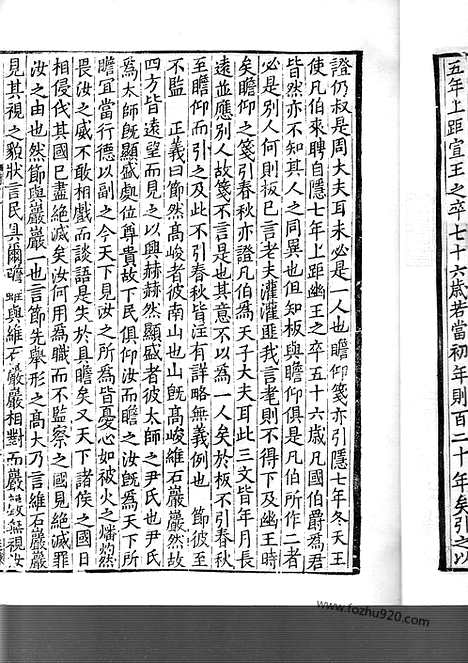 五年上距宣王之卒七十六歲若當初年則百二十年矣引之以
證仍叔是周大夫耳未必是一人也瞻仰箋亦引隱七年冬天王
使凡伯來聘自隱七年上距幽王之卒五十六歲凡國伯爵爲君
皆然亦不知其人之同異也但知板與瞻仰俱是凡伯所作二者
必是別人何則板巳言老夫灌灌匪我言耄則不得下及幽王時
矣瞻仰之箋引春秋亦證凡伯爲天子大夫耳此三文皆年月長
遠並應別人故箋不言是也其意不以爲一人矣於板不引春秋
至瞻仰而引之及此不引春秋皆注有詳略無義例也 節彼至
不監 正義曰節然高峻者彼南山也山旣高峻維石巖巖然故
四方皆遠望而見之以興赫赫然顯盛者彼太師之尹氏也尹氏
爲太師旣顯盛處位尊貴故下民俱仰汝而瞻之汝旣爲天下所
瞻宜當行德以副之今天下見汝之所爲皆憂心如被火之燔灼然
畏汝之威不敢相戲而談語是失於具瞻矣又天下諸侯之國日
相侵伐其國巳盡絶滅矣汝何用爲職而不監察之國見絶滅罪
汝之由也然節與巖巖一也言節先舉形之高大乃言維石巖巖
見其視之貌狀言民具爾瞻 與維石巖巖相對而巖 故無視汝
www.fozhu920.com